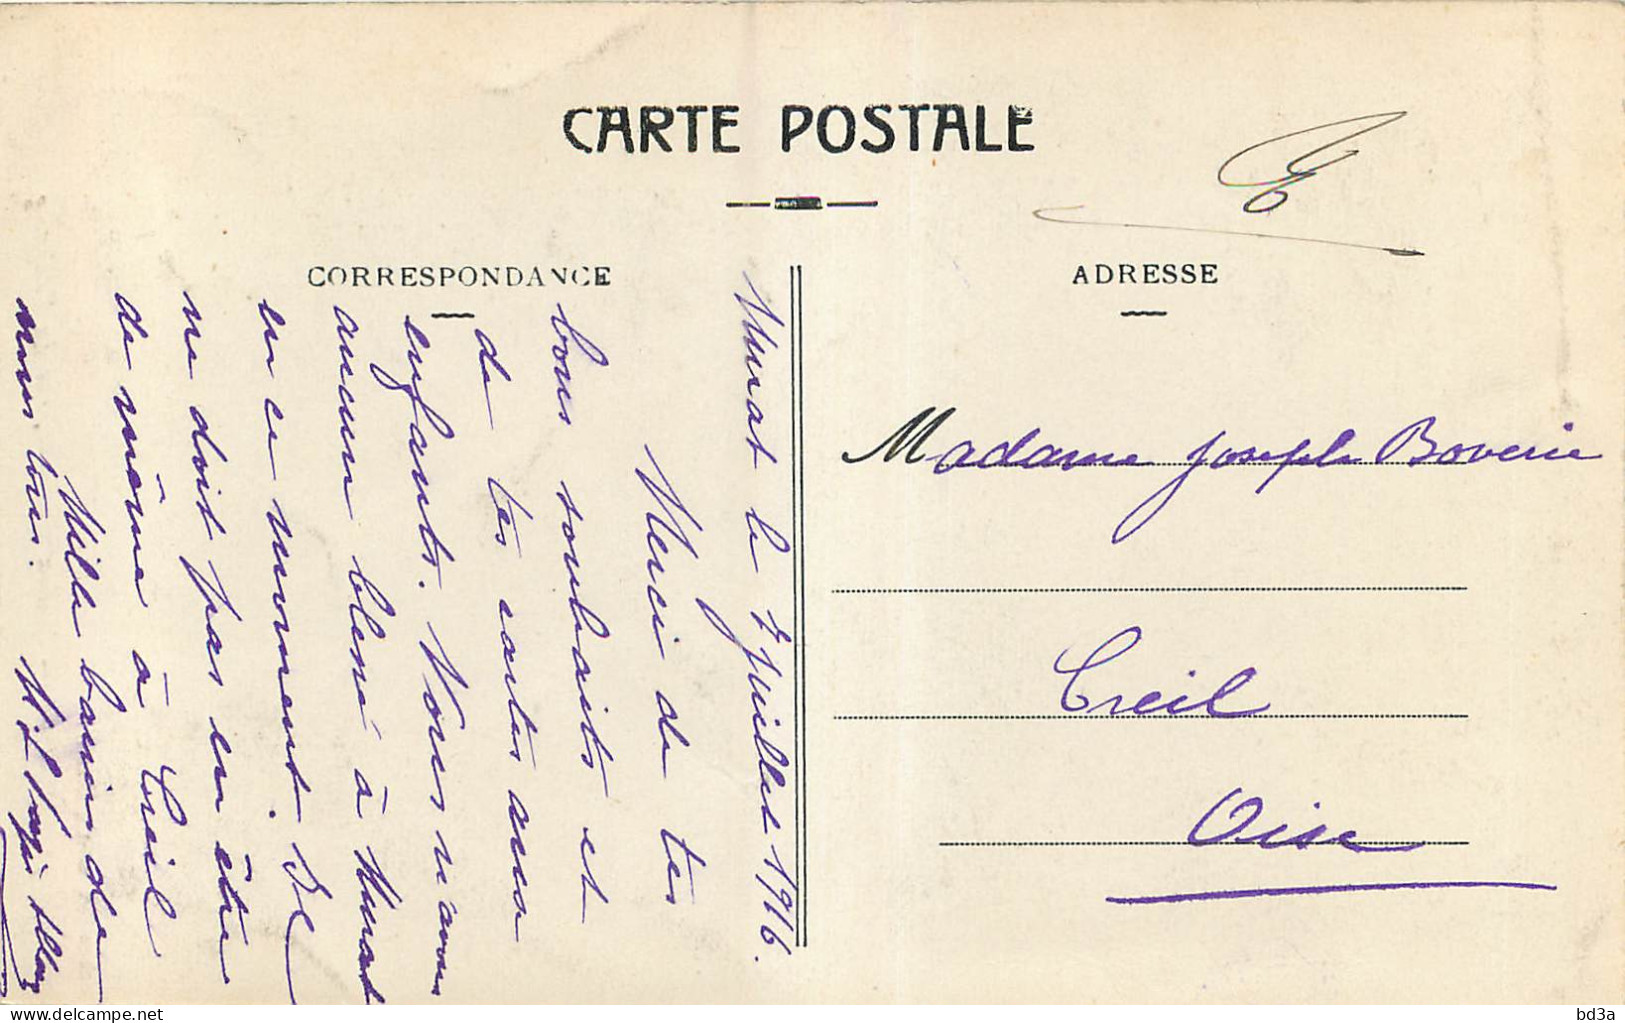 CARTE POSTALE
CORRESPONDANCE
ADRESSE
Murat le 7 juillet 1916.
Merci de tes
bons souhaits et
de tes cartes aux
enfants. Nous n'avons
aucun blessé à Murat
en ce moment. Il
ne doit pas en être
de même à Creil
Mille baisers de
nous tous.
Madame Joseph Boverie
Creil
Oise
www.delcampe.net
bd3a